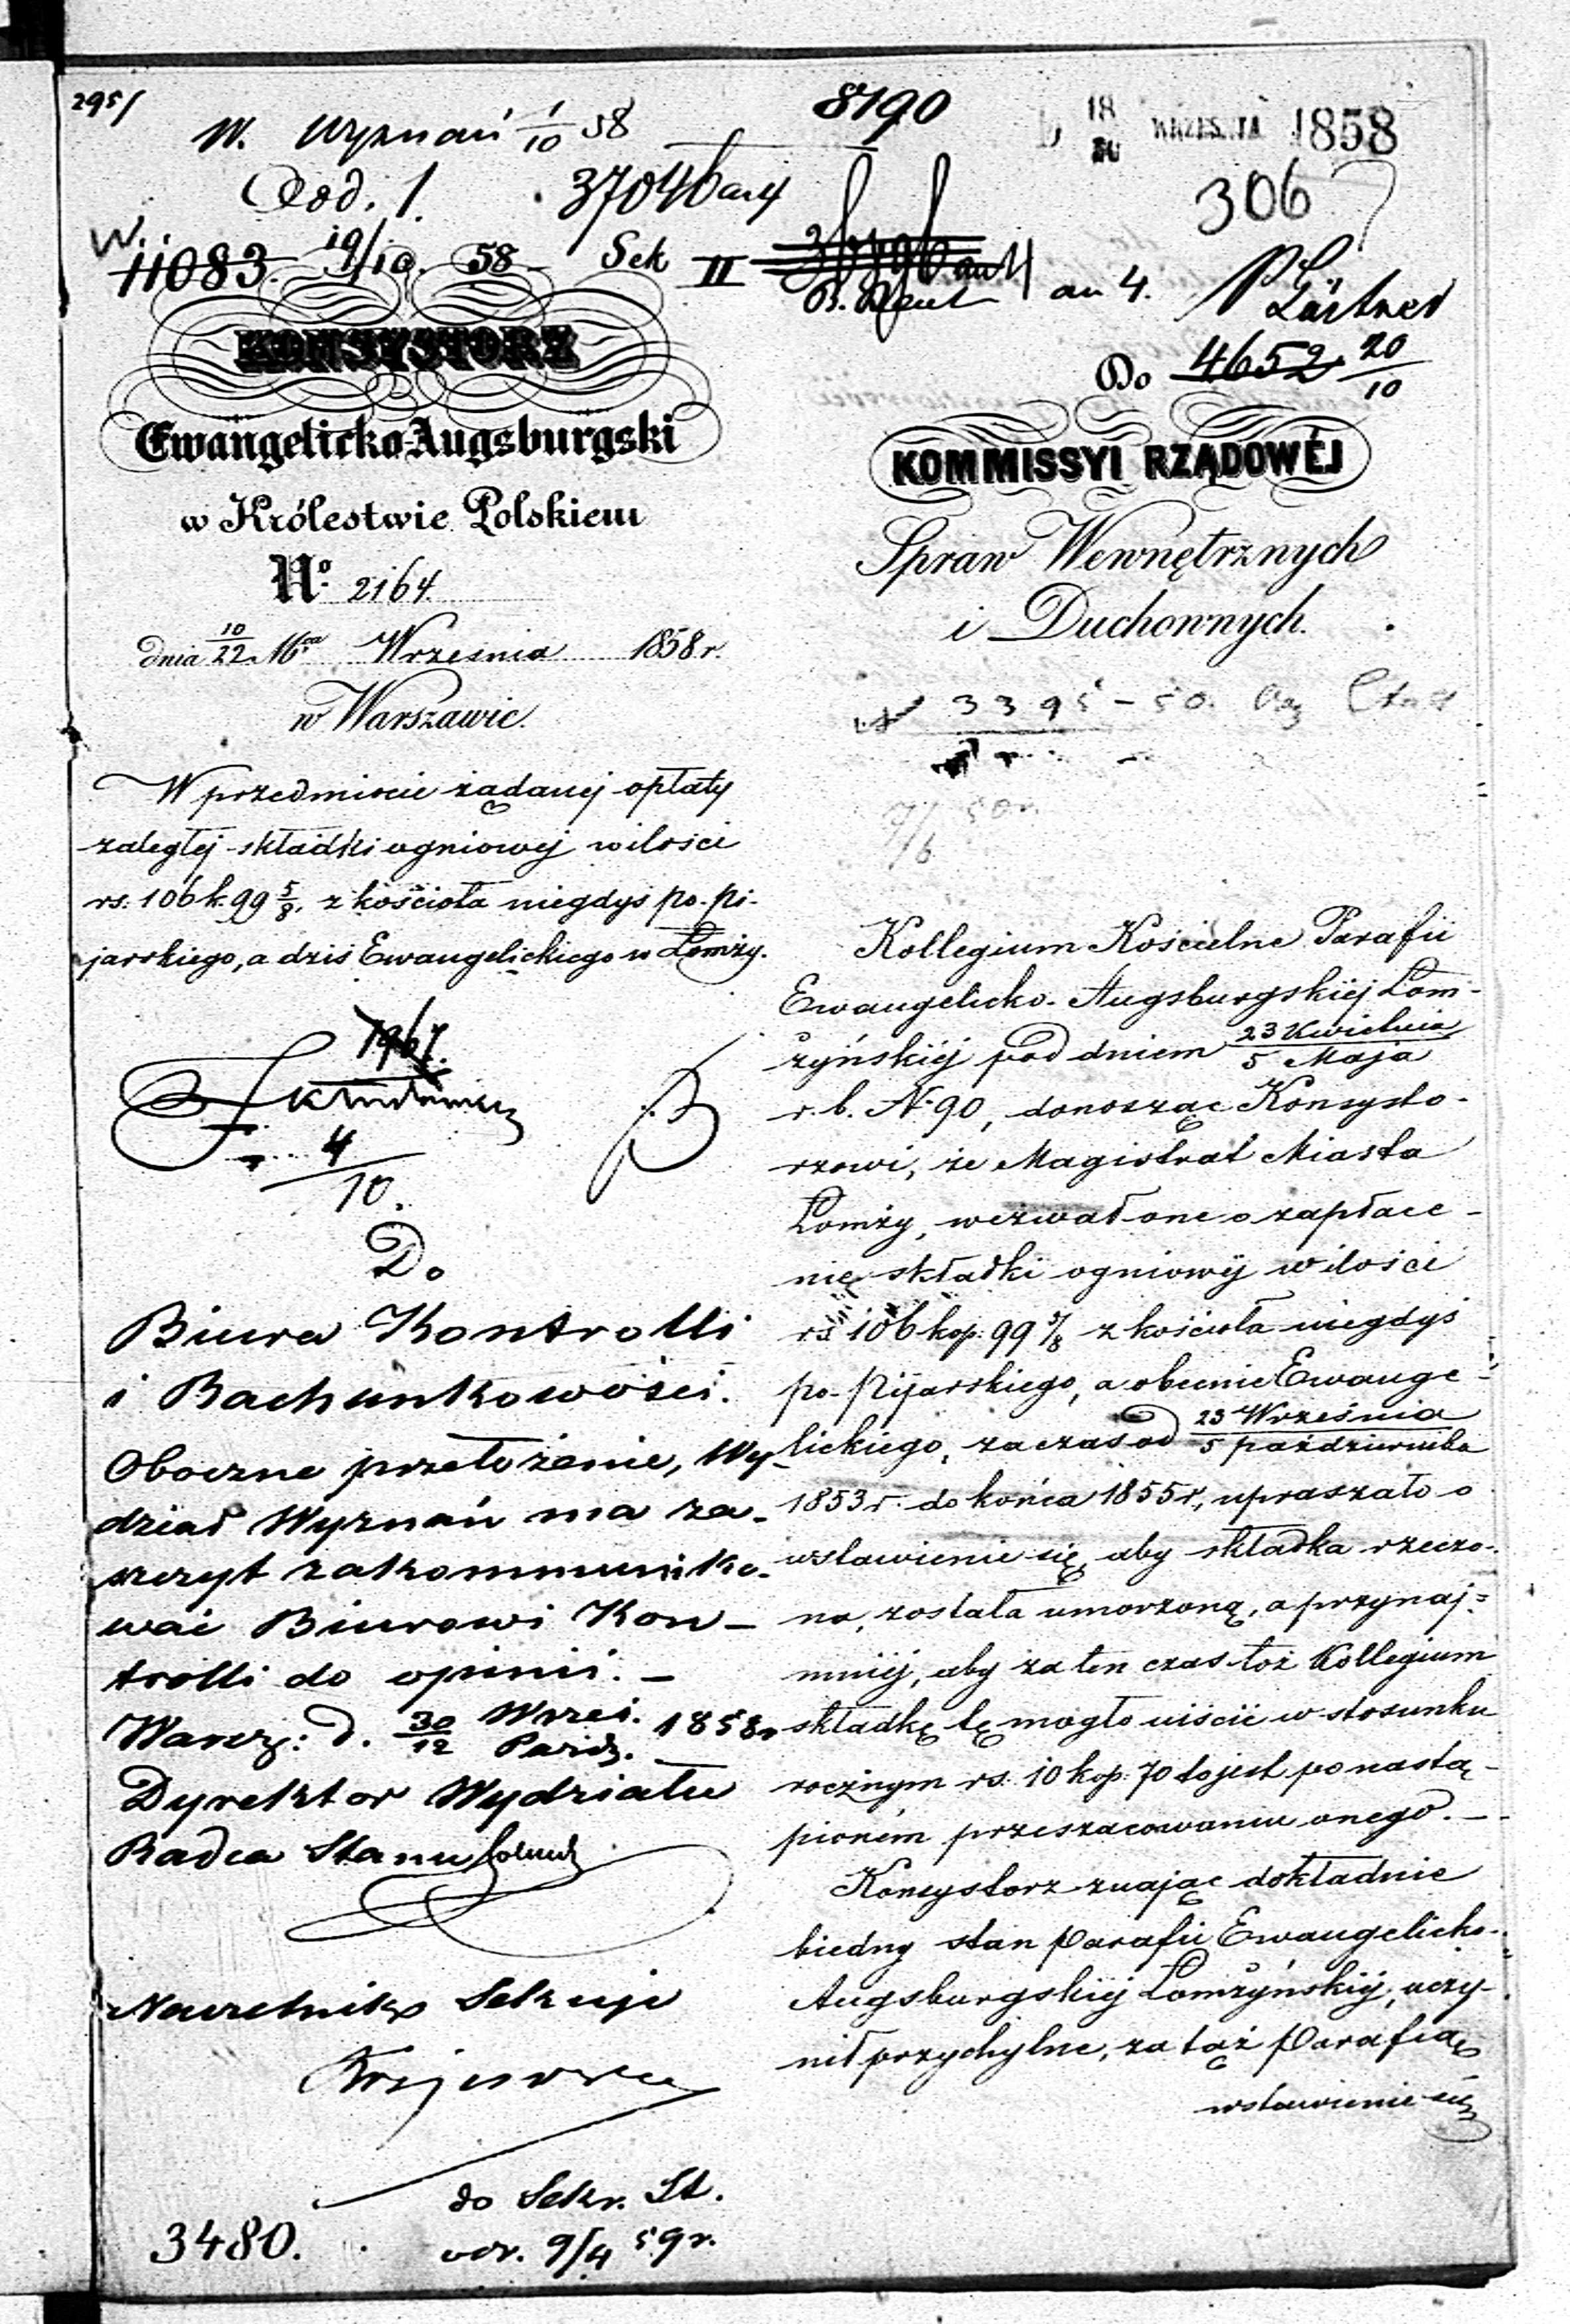 295/
W. Wyznań 1/10 58
8190
18/30 WRZEŚNIA 1858
Dod. 1.
37046
306
W. 11083. 19/10. 58 Sek II
an 4.
Do 4652 20/10
KONSYSTORZ
Ewangelicko-Augsburgski
w Królestwie Polskiem
No. 2164.
dnia 10/22 Mca Września 1858 r.
w Warszawie.
KOMMISSYI RZĄDOWÉJ
Spraw Wewnętrznych
i Duchownych.
3395 - 50.
W przedmiocie żądanej opłaty
zaległej składki ogniowej w ilości
rs. 106 k. 99 5/8, z kościoła niegdyś po-pi-
jarskiego, a dziś Ewangelickiego w Łomży.
4/10.
Do
Biura Kontrolli
i Rachunkowości.
Oboczne przełożenie, Wy-
dział Wyznań ma za-
szczyt zakommuniko-
wać Biurowi Kon-
trolli do opinii. –
Warsz: d. 30/12 Wrześ./Paźdz. 1858 r
Dyrektor Wydziału
Radca Stanu
Naczelnik Sekcyi
do Sekr. St.
3480.
9/4 59 r.
Kollegium Kościelne Parafii
Ewangelicko-Augsburgskiéj Łom-
żyńskiéj pod dniem 23 Kwietnia/5 Maja
r. b. N. 90, donosząc Konsysto-
rzowi, że Magistrat Miasta
Łomży, wezwał one o zapłace-
nie składki ogniowéj w ilości
rs. 106 kop. 99 5/8 z kościoła niegdyś
po-Pijarskiego, a obecnie Ewange-
lickiego, za czas od 23 Września/5 października
1853 r. do końca 1855 r., upraszało o
wstawienie się, aby składka rzeczo-
na, została umorzoną, a przynaj-
mniéj, aby za ten czas toż Kollegium
składkę tę mogło uiścić w stosunku
rocznym rs. 10 kop. 70 to jest po nastą-
pioném przeszacowaniu onego. –
Konsystorz znając dokładnie
biedny stan Parafii Ewangelicko-
Augsburgskiéj Łomżyńskiéj, uczy-
nił przychylne, za tąż Parafią
wstawienie się